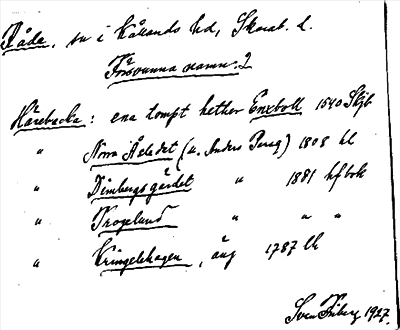 Råda, sn i Kållands hd, Skarab. l.
Försvunna namn. 2
Håsebacka: ena tompt hether Enxboll 1540 Skjb
" Norra Åsladet (u. Anders Persg) 1808 hl
" Dimbergsgärdet " 1881 hfbok
" Krogelund " " "
" Kringelhagen, äng 1787 lh
Sven Friberg 1927.